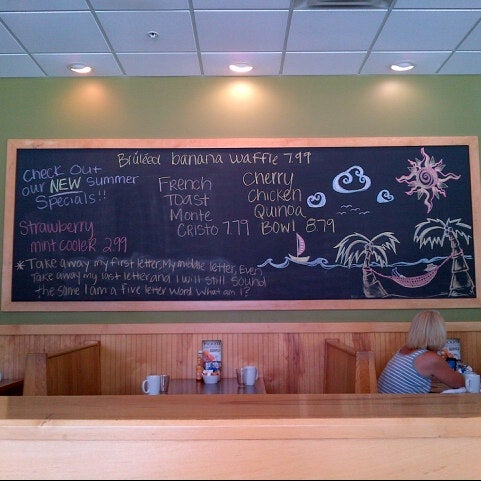 Brúléed banana waffle 7.99
Check Out
our NEW Summer
Specials!!
Strawberry
mint cooler 2.99
French
Toast
Monte
Cristo 7.79
Cherry
Chicken
Quinoa
Bowl 8.79
* Take away my first letter, My middle letter, Even
take away my last letter and I will still sound
the same I am a five letter word. What am i?